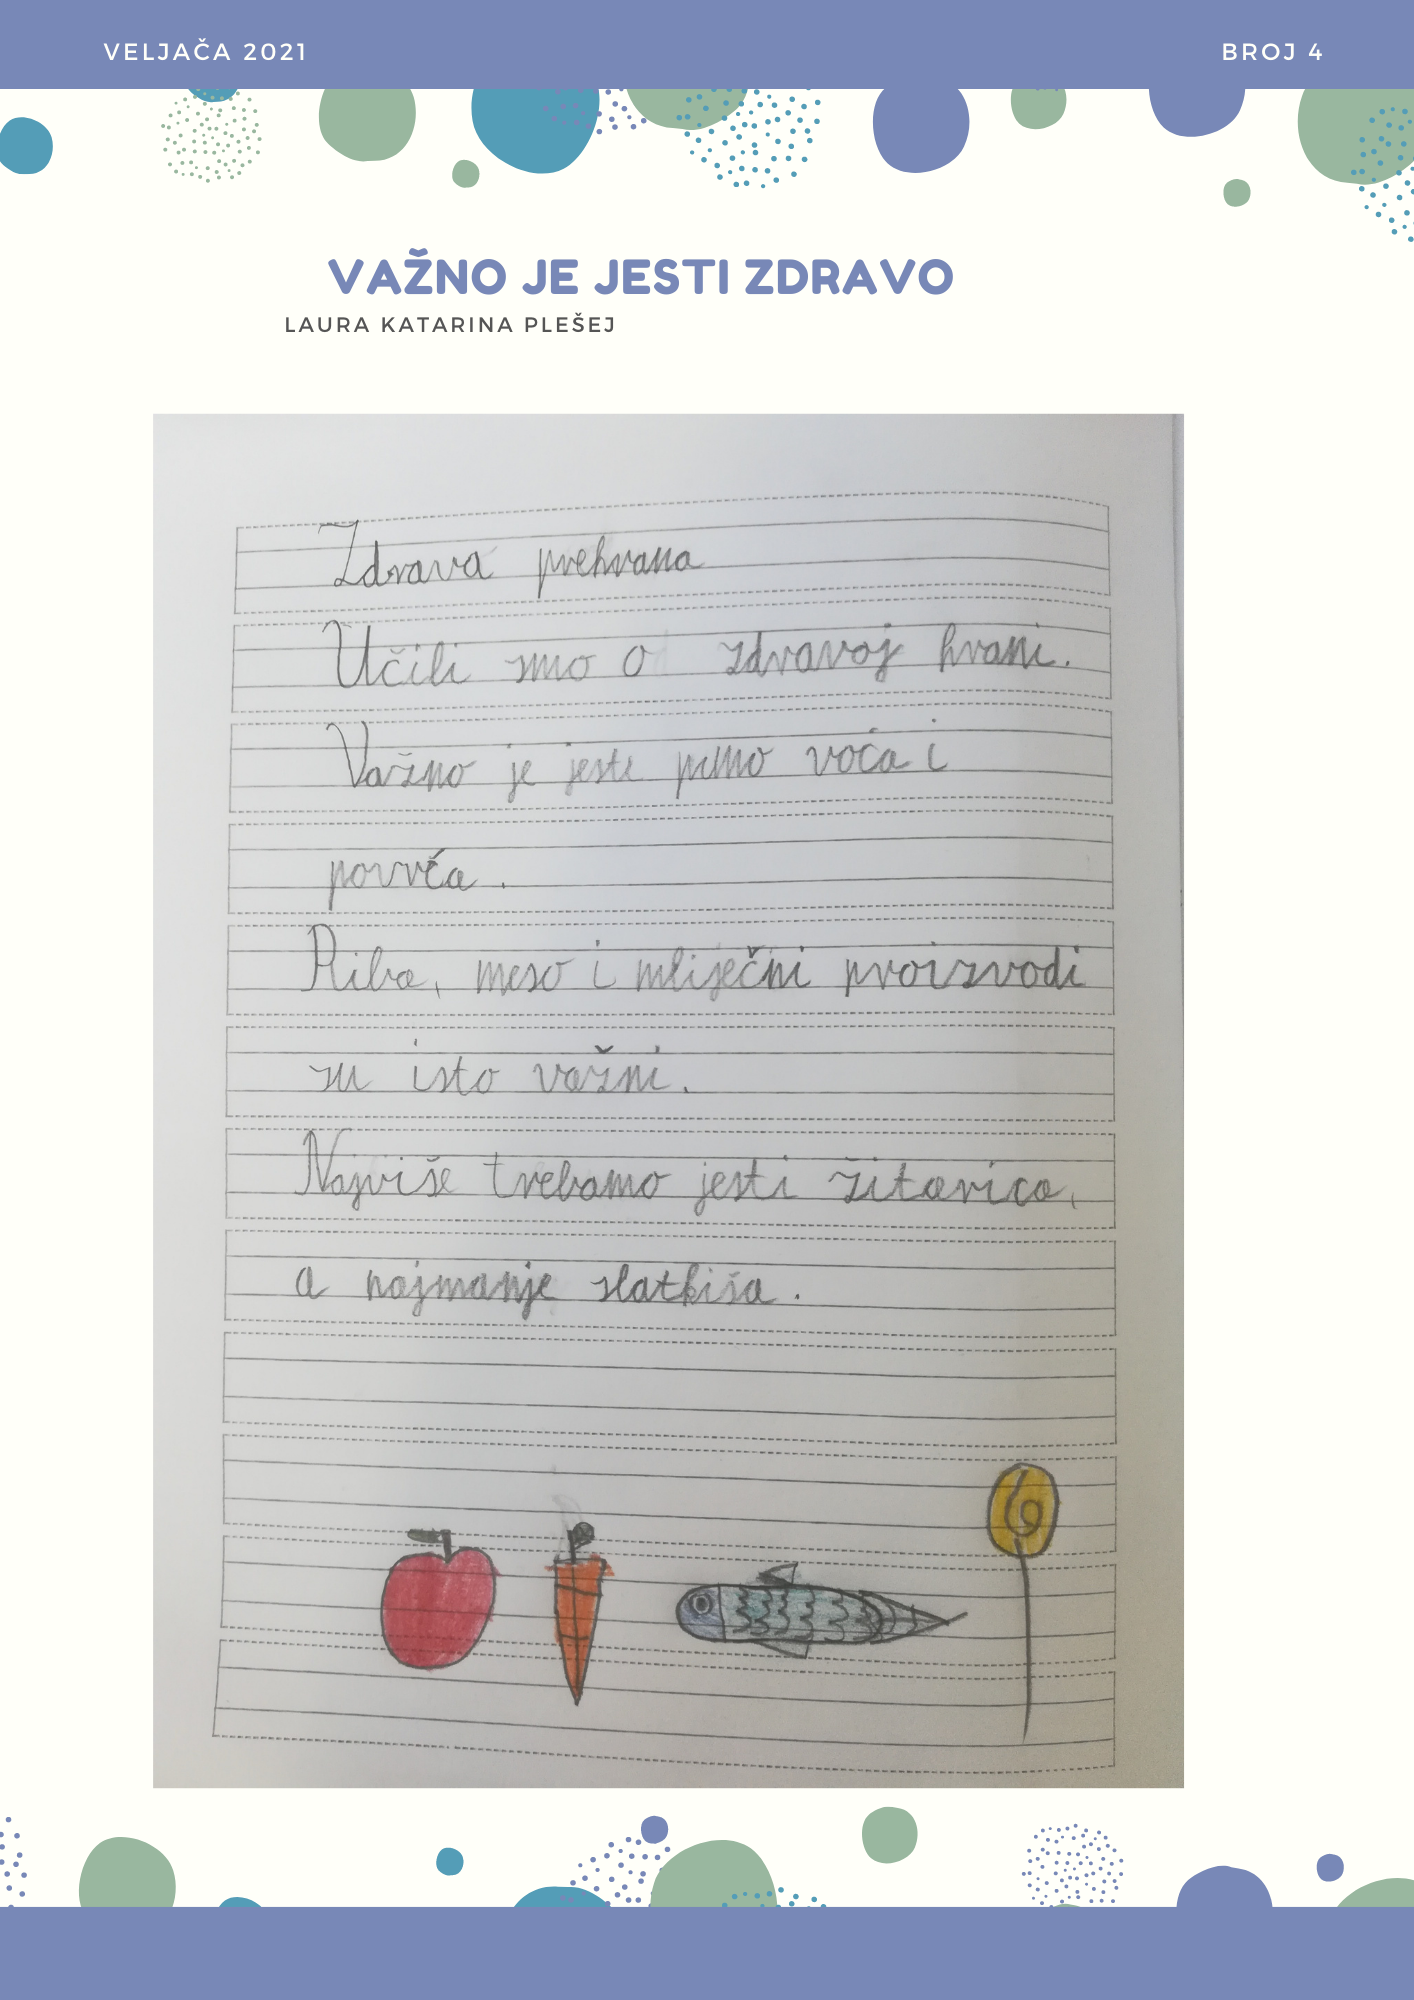 VELJAČA 2021
BROJ 4
VAŽNO JE JESTI ZDRAVO
LAURA KATARINA PLEŠEJ
Zdrava prehrana
Učili smo o zdravoj hrani.
Važno je jesti puno voća i
povrća.
Riba, meso i mliječni proizvodi
su isto važni.
Najviše trebamo jesti žitarica,
a najmanje slatkiša.